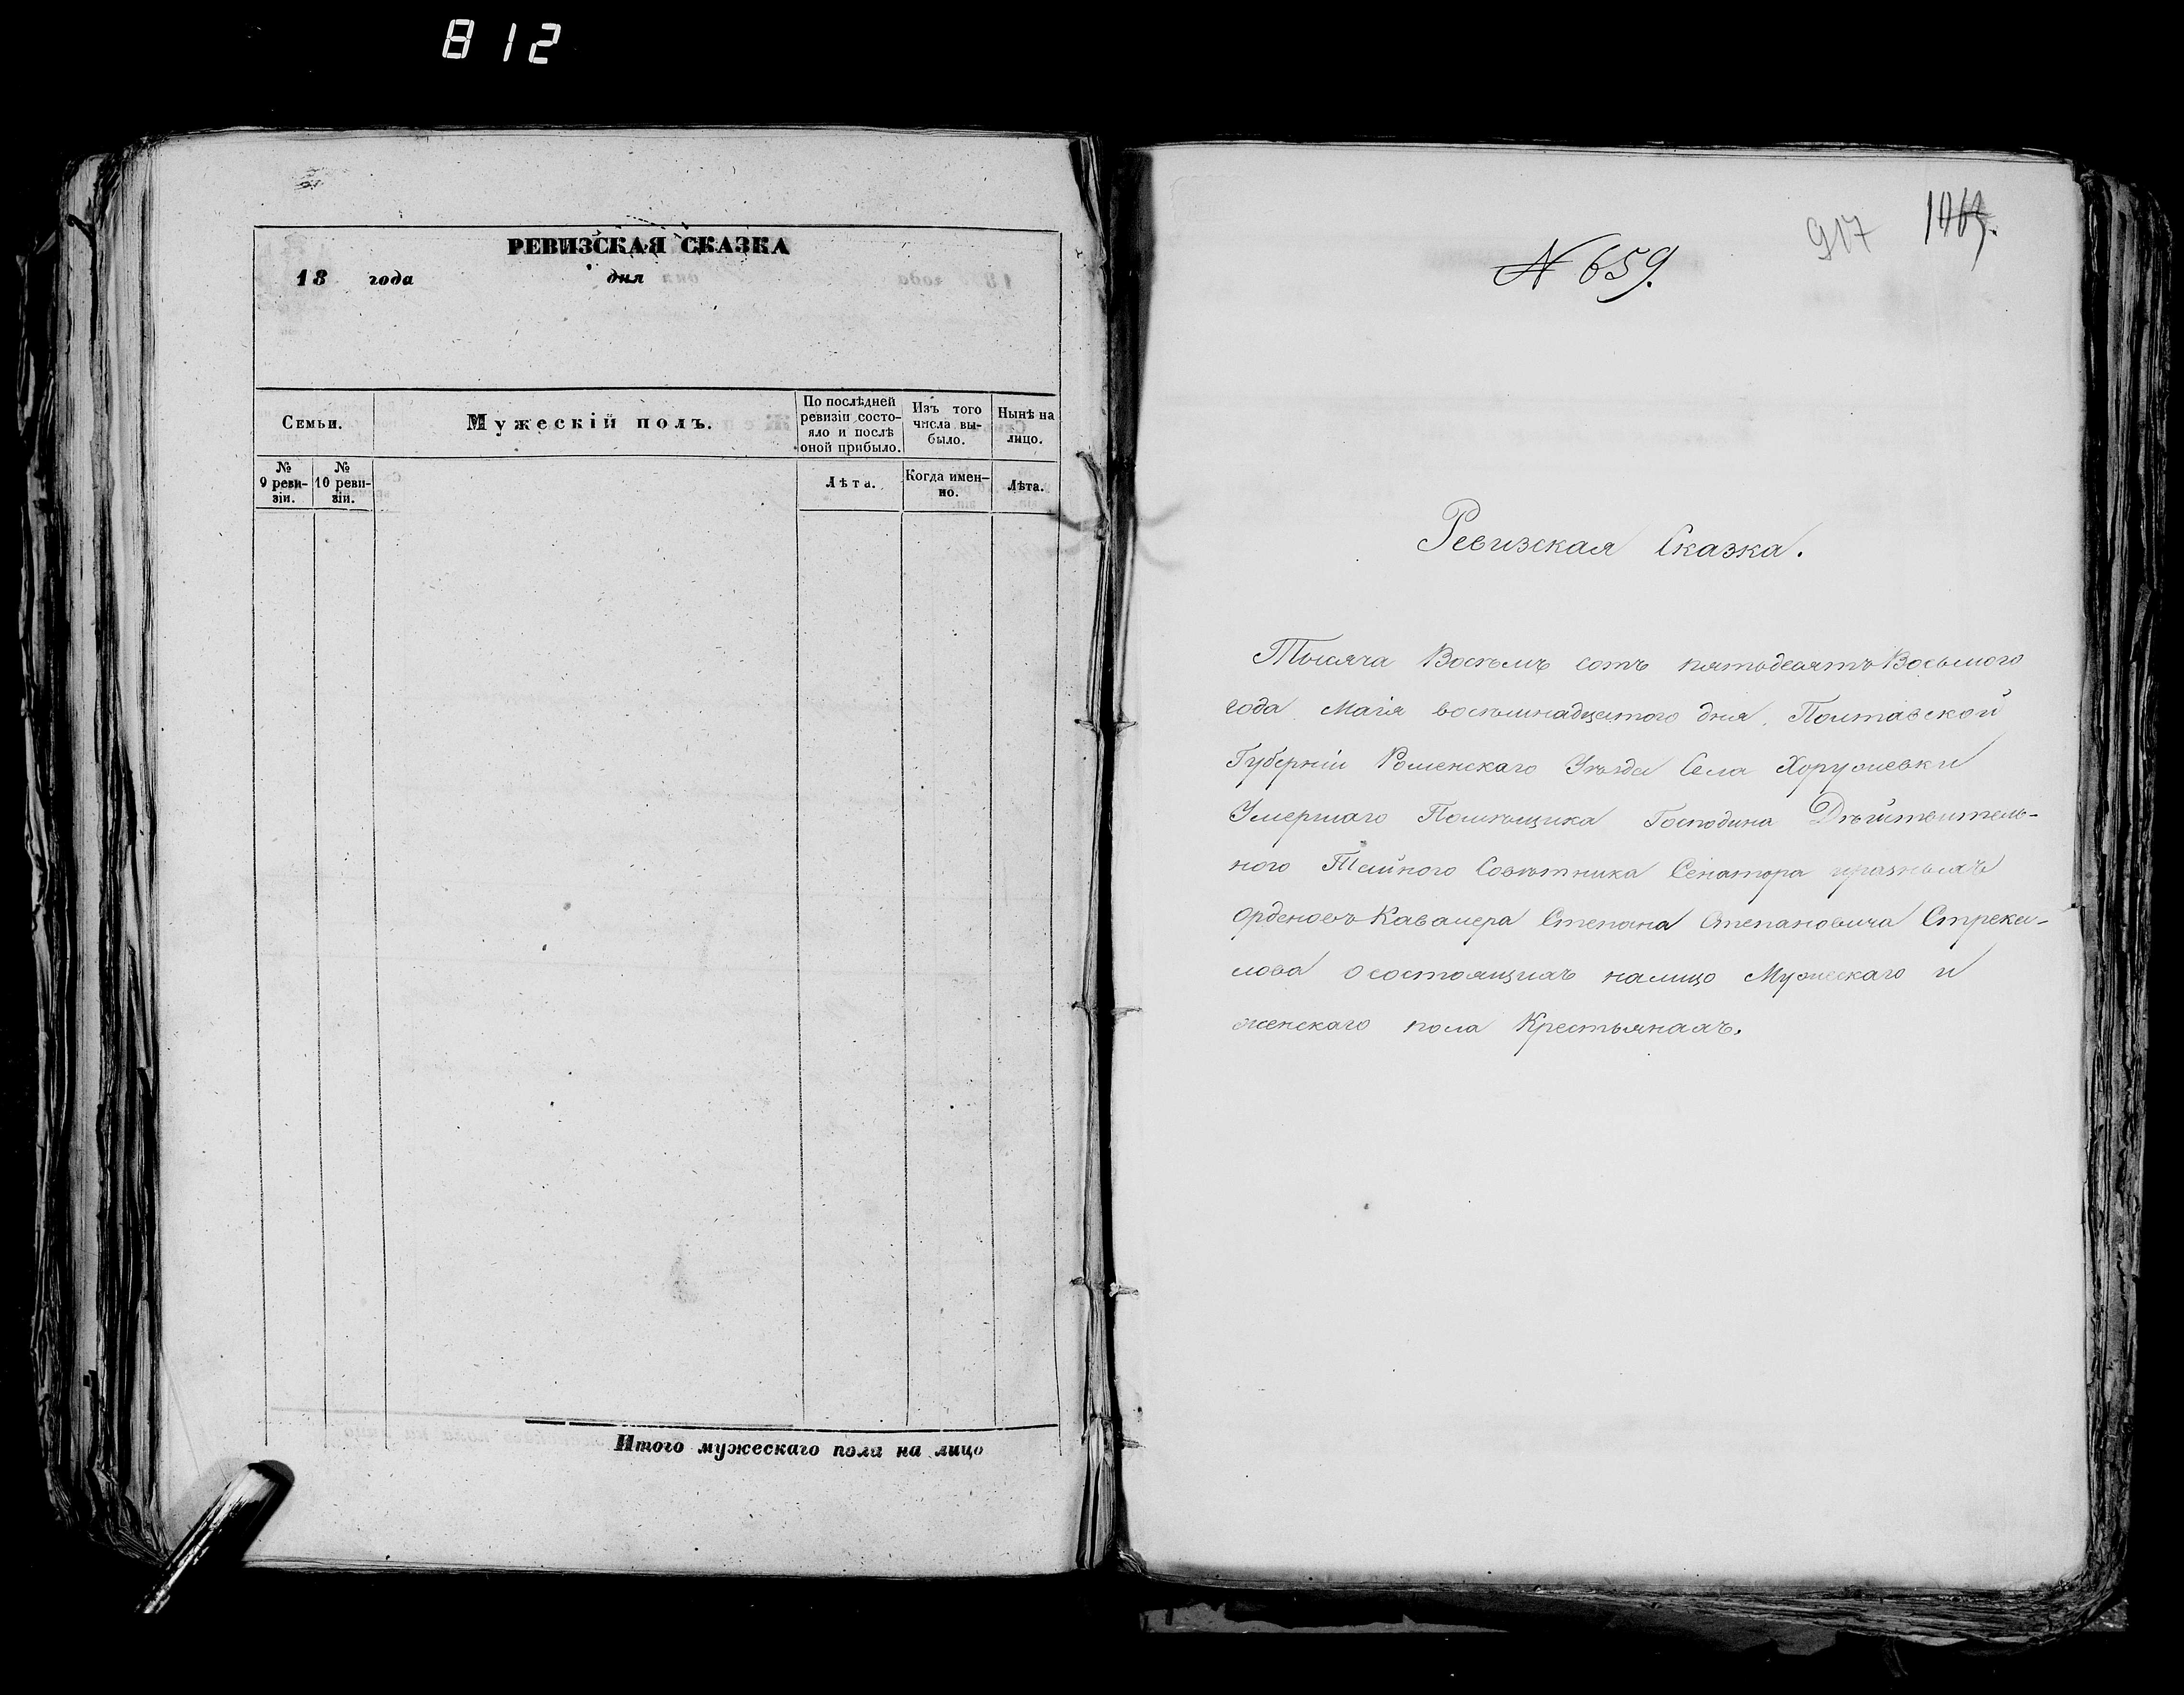 812
РЕВИЗСКАЯ СКАЗКА
18 года дня
Семьи.
Мужескій полъ.
По послѣдней
ревизіи состо-
яло и послѣ
оной прибыло.
Изъ того
числа вы-
было.
Нынѣ на
лицо.
№
9 реви-
зіи.
№
10 реви-
зіи.
Лѣта.
Когда имен-
но.
Лѣта.
Итого мужескаго пола на лицо
917 1069.
N 659.
Ревизская Сказка.
Тысяча Восѣмъ сотъ пятьдесятъ Восьмого
года Маія восѣмнадцетого дня, Полтавской
Губерніи Роменскаго Уѣзда Села Хоружевки
Умершаго Помѣщика Господина Дѣйствитель-
ного Тайного Совѣтника Сенатора иразныхъ
Орденовъ Кавалера Степана Степановича Стрека-
лова осостоящихъ налицо Мужескаго и
женскаго пола Крестьянахъ.